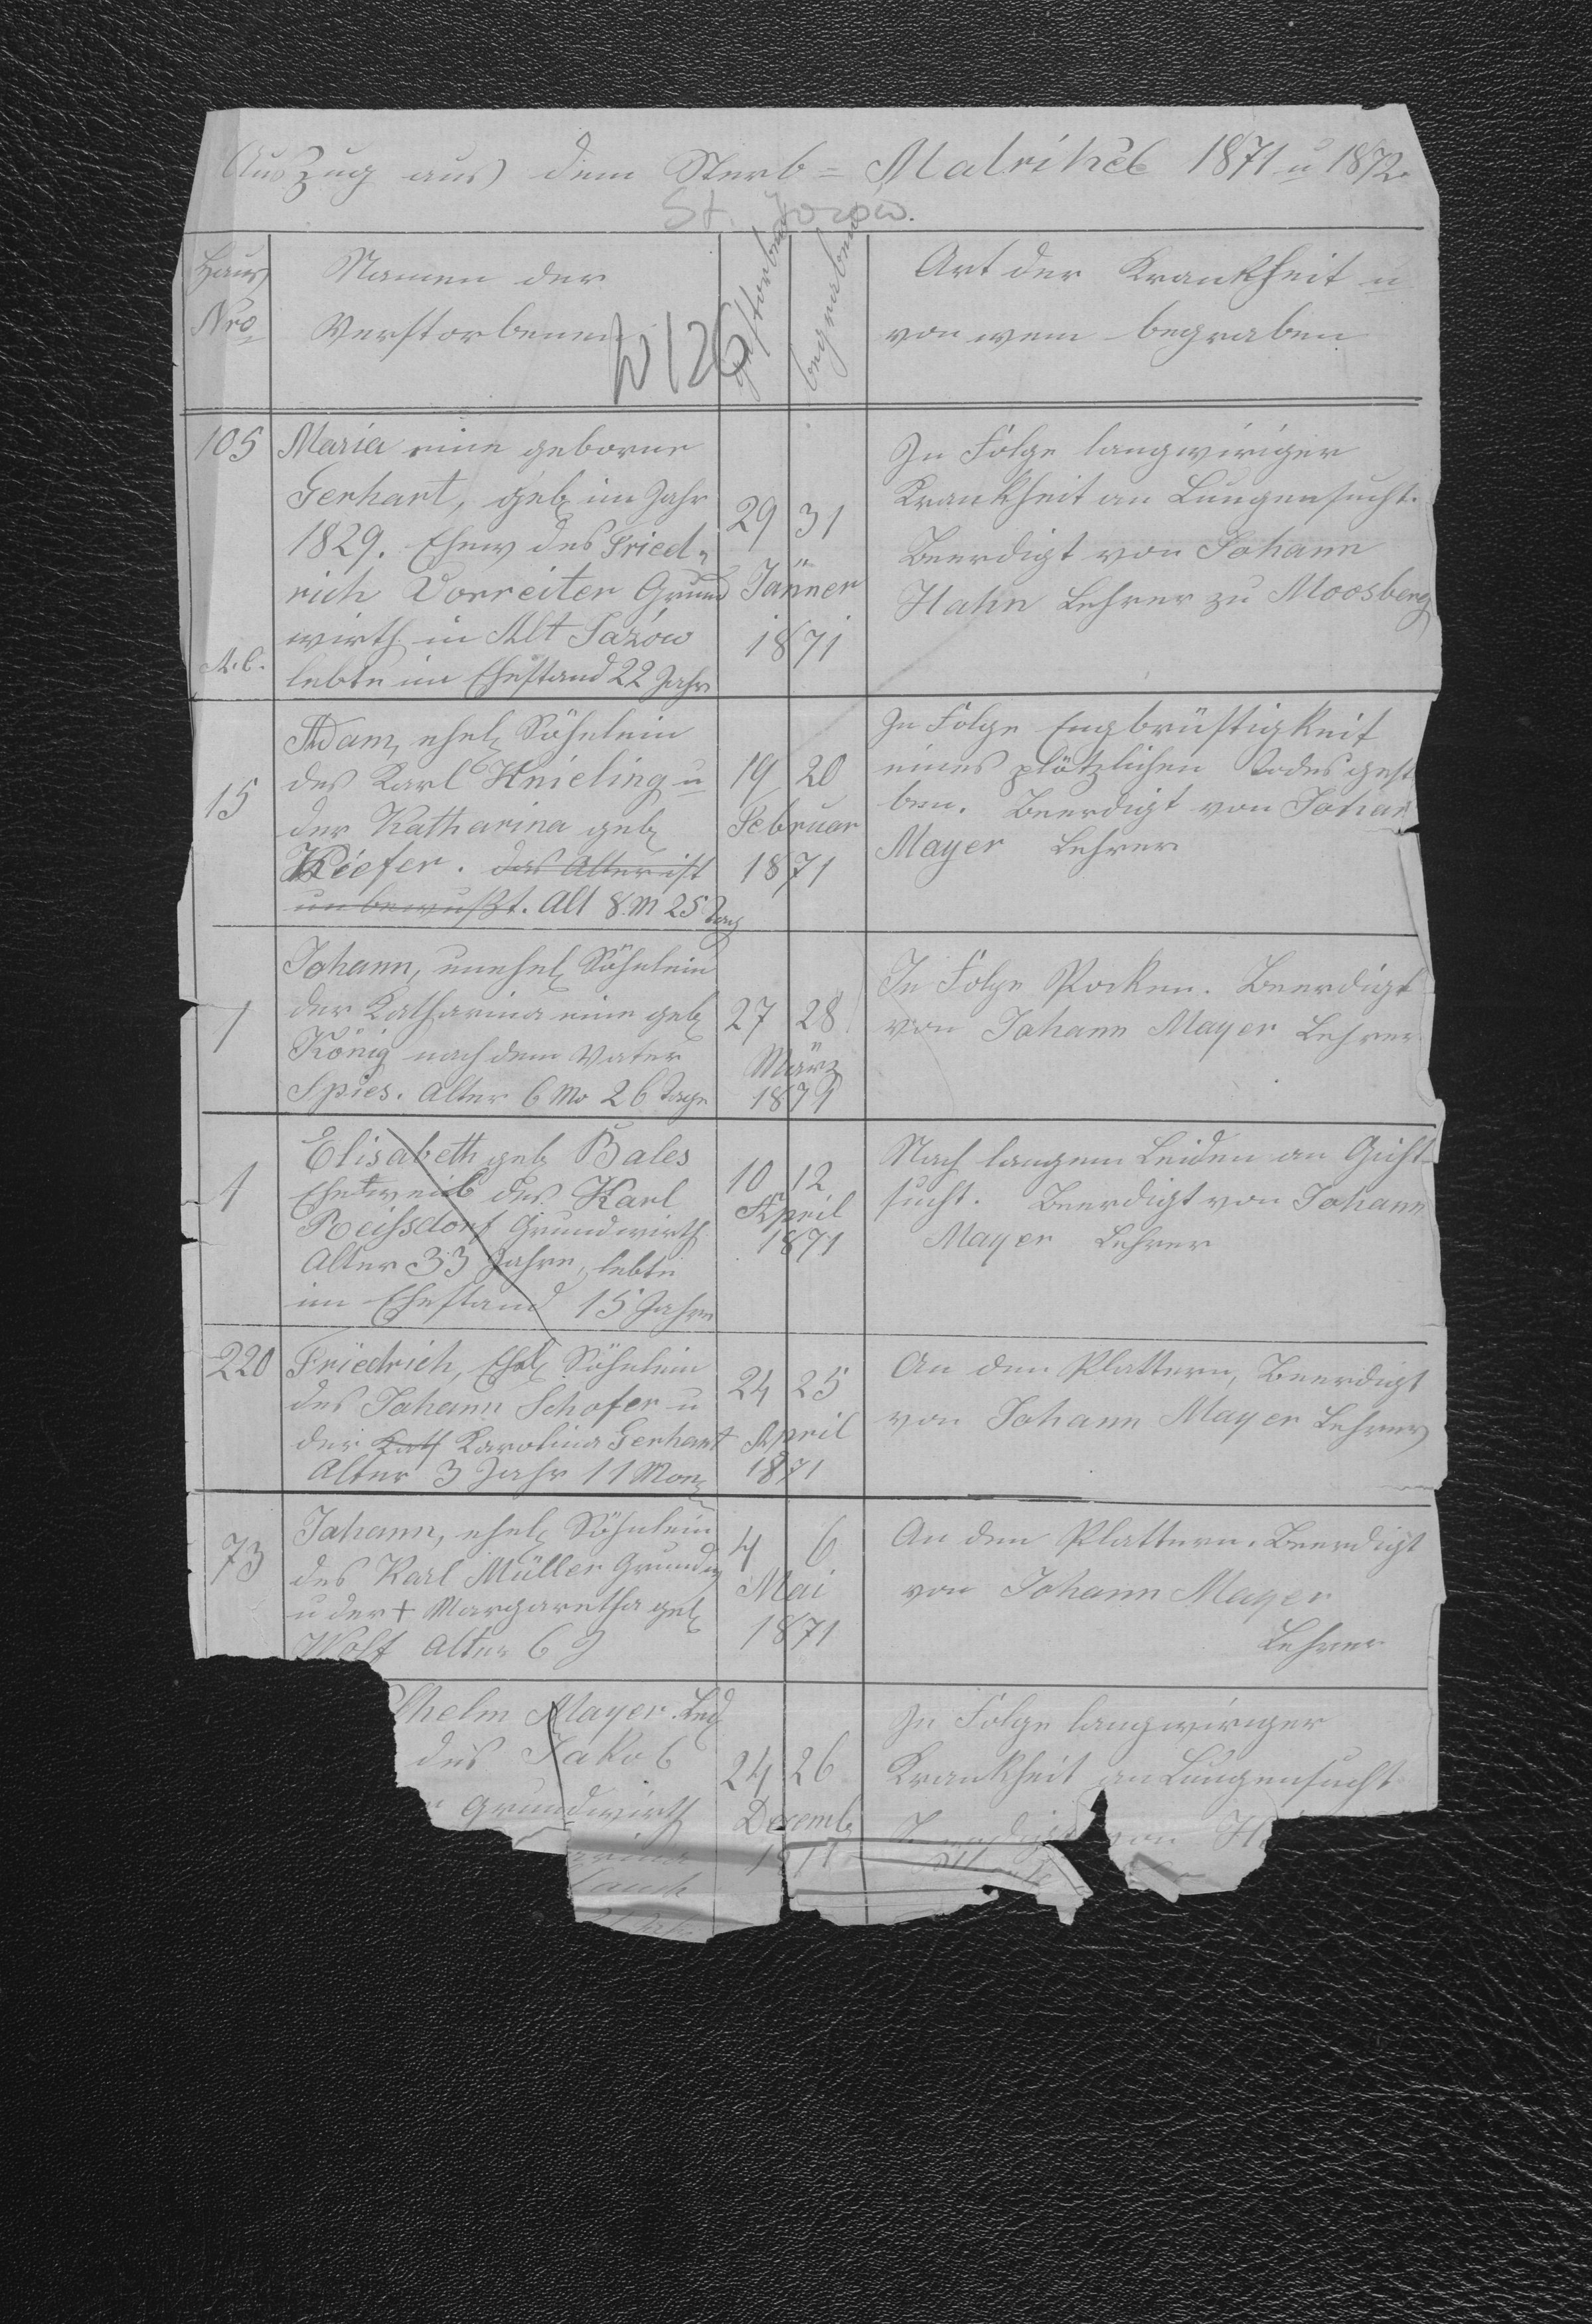 Auszug aus dem Sterb= Matrikel 1871 u 1872.
St. Jozow.
Haus
Nro
Namen der
Verstorbenen
W 126
gestorben
begraben
Art der Krankheit u
von wem begraben
105
Maria eine geborne
Gerhart, geb im Jahr
1829. Ehew des Fried=
rich Vorreiter Grund
wirth in Alt Jazów
lebte im Ehestand 22 Jahr
A. C.
29 31
Jänner
1871
In Folge langwieriger
Krankheit an Lungensucht.
Beerdigt von Johann
Hahn Lehrer zu Moosberg
15
Adam, ehel Söhnlein
des Karl Knieling u
der Katharina geb
Kiefer. das Alter ist
unbewußt. Alt 8. M 25 Tag
19 20
Februar
1871
In Folge Engbrüstigkeit
eines plötzlichen Todes gest
ben. Beerdigt von Johan
Mayer Lehrer
1
Johann, unehel Söhnlein
der Katharina eine geb
König nach dem Vater
Spies. Alter 6 Mo 26 Tage
27 28
März
1871
In Folge Pocken. Beerdigt
von Johann Mayer Lehrer
1
Elisabeth geb Bales
Eheweib des Karl
Reissdorf Grundwirth
Alter 33 Jahre, lebte
im Ehestand 15 Jahre
10 12
April
1871
Nach langem Leiden an Gicht
sucht. Beerdigt von Johann
Mayer Lehrer
220
Friedrich, Ehel Söhnlein
des Johann Schofer u
der Kath Karolina Gerhart
Alter 3 Jahr 11 Mon
24 25
April
1871
An den Blattern, Beerdigt
von Johann Mayer Lehrer
73
Johann, ehel Söhnlein
des Karl Müller Grundw
u der + Margaretha geb
Wolf Alter 6 J
4 6
Mai
1871
An den Blattern. Beerdigt
von Johann Mayer
Lehrer
lhelm Mayer. Led
des Jakob
Grundwirth
24 26
Decemb
1871
In Folge langwieriger
Krankheit an Lungensucht
von